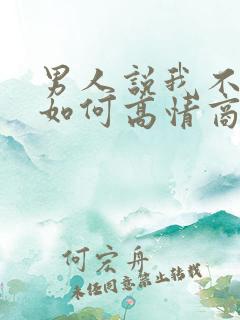 男人說我不
如何高情商
何宏舟
未经同意禁止转载